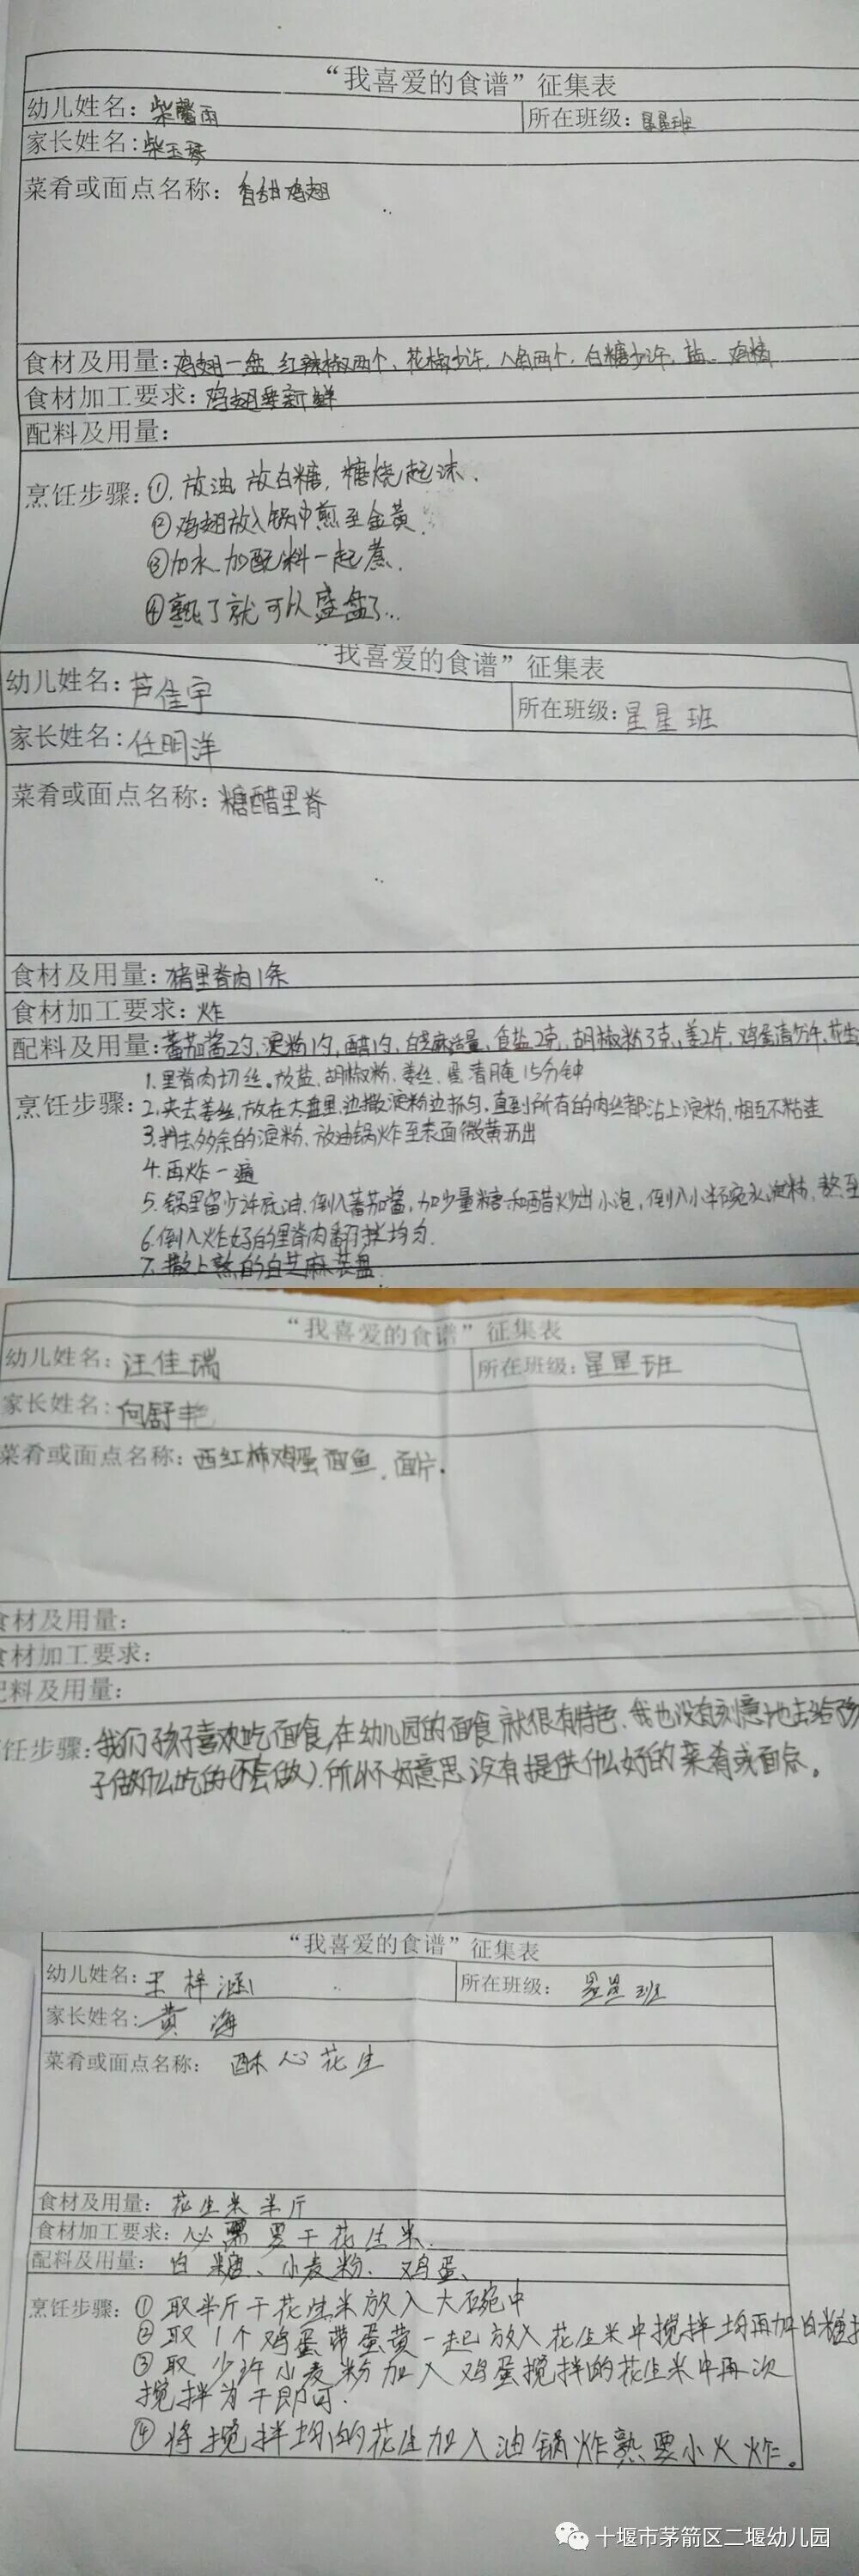 “我喜爱的食谱”征集表
幼儿姓名：柴馨雨 所在班级：星星班
家长姓名：柴玉琴
菜肴或面点名称：香甜鸡翅
食材及用量：鸡翅一盘 红辣椒两个，花椒少许，八角两个，白糖少许，盐、鸡精
食材加工要求：鸡翅要新鲜
配料及用量：
烹饪步骤：①，放油 放白糖，糖烧起沫．
②鸡翅放入锅中煎至金黄．
③加水．加配料一起煮．
④熟了就可以盛盘了…
“我喜爱的食谱”征集表
幼儿姓名：芦佳宇 所在班级：星星班
家长姓名：任明洋
菜肴或面点名称：糖醋里脊
食材及用量：猪里脊肉1条
食材加工要求：炸
配料及用量：蕃茄酱2勺，淀粉1勺，醋1勺，白芝麻适量，食盐2克，胡椒粉3克，姜2片，鸡蛋清少许，
1.里脊肉切丝。放盐、胡椒粉、姜丝、蛋清腌15分钟
烹饪步骤：2.夹去姜丝，放在大盘里，边撒淀粉边抓匀，直到所有的肉丝都沾上淀粉，相互不粘连
3.抖去多余的淀粉、放油锅炸至表面微黄沥出
4.再炸一遍
5.锅里留少许底油．倒入蕃茄酱，加少量糖和醋炒出小泡，倒入小半碗水淀粉，熬至
6.倒入炸好的里脊肉翻拌均匀．
7.撒上熟的白芝麻装盘
“我喜爱的食谱”征集表
幼儿姓名：汪佳瑞 所在班级：星星班
家长姓名：何舒艳
菜肴或面点名称：西红柿鸡蛋面鱼、面片．
食材及用量：
食材加工要求：
配料及用量：
饪步骤：我们孩子喜欢吃面食，在幼儿园的面食就很有特色，我也没有刻意地去给孩
子做什么吃的(不会做)．所以不好意思没有提供什么好的菜肴或面点。
“我喜爱的食谱”征集表
幼儿姓名：王梓涵 所在班级：星星班
家长姓名：黄海
菜肴或面点名称：酥心花生
食材及用量：花生米半斤
食材加工要求：必需要干花生米．
配料及用量：白糖、小麦粉、鸡蛋、
烹饪步骤：①取半斤干花生米放入大碗中
②取1个鸡蛋带蛋黄一起放入花生米中搅拌均再加白糖
③取少许小麦粉加入鸡蛋搅拌的花生米中再次
搅拌为干即可．
④将搅拌均的花生加入油锅炸熟要小火炸。
十堰市茅箭区二堰幼儿园